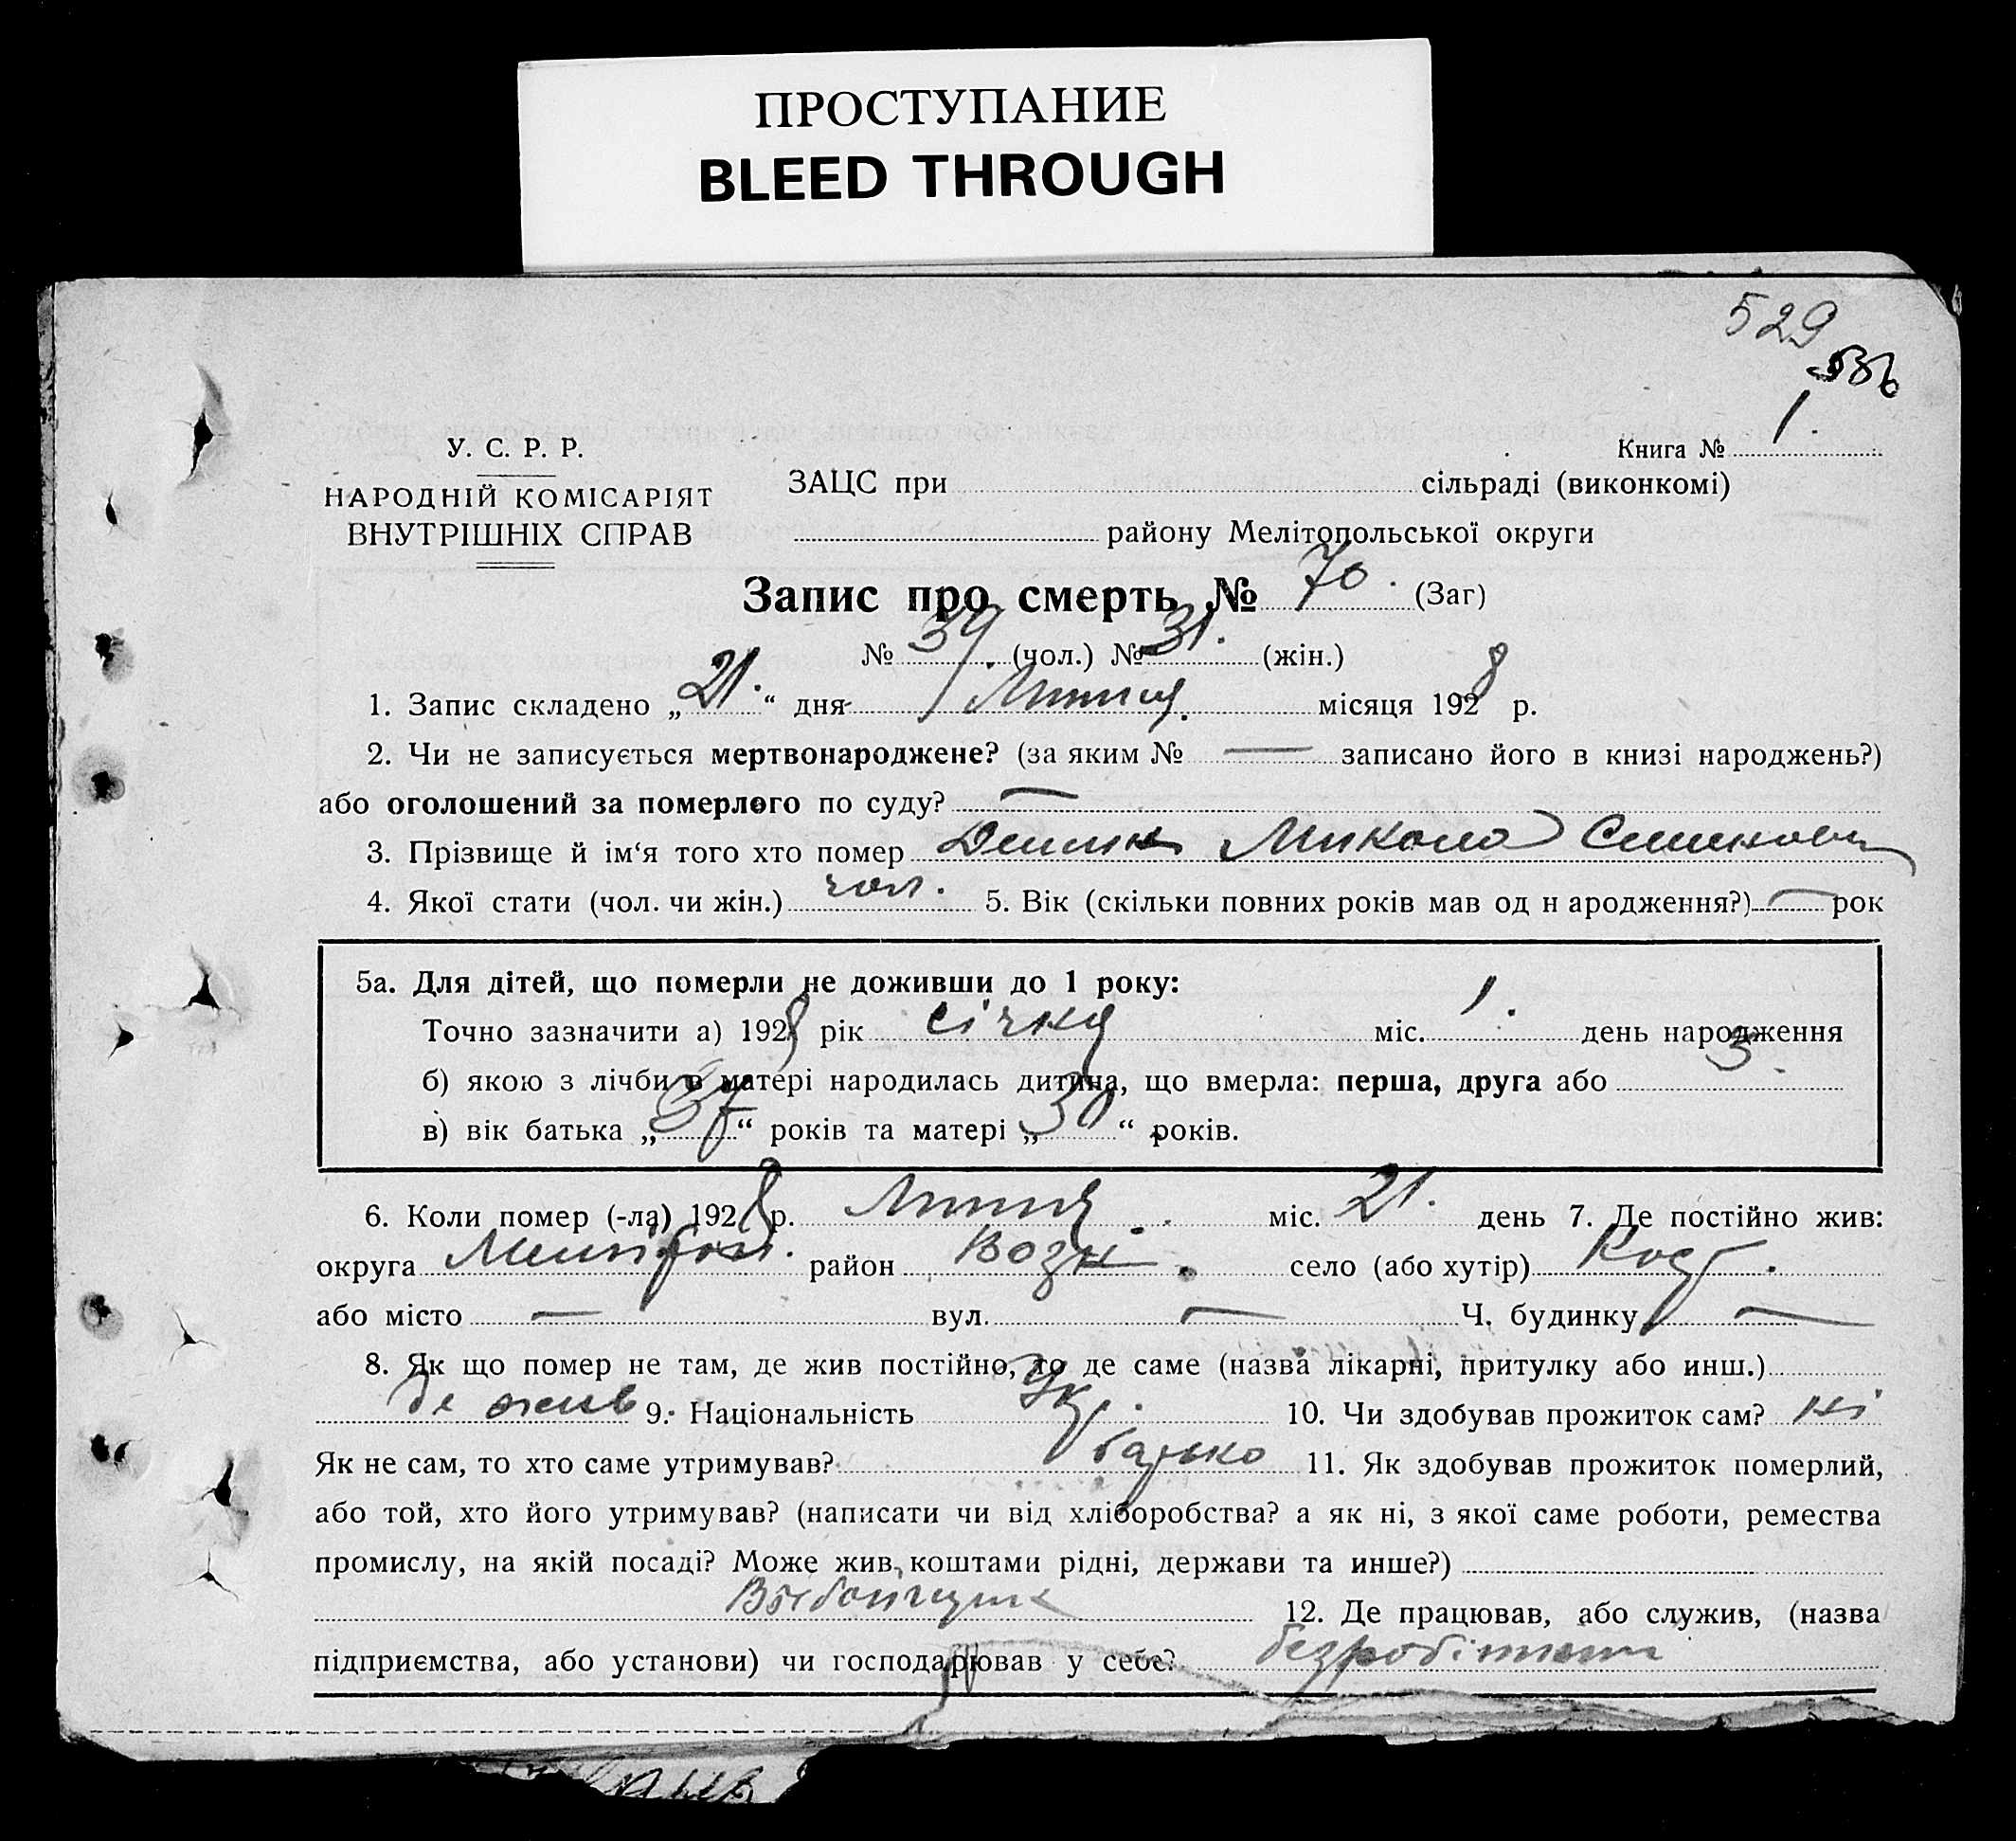 ПРОСТУПАНИЕ
BLEED THROUGH
529
536
У. С. Р. Р.
Книга № 1.
НАРОДНІЙ КОМІСАРІЯТ
ВНУТРІШНІХ СПРАВ
ЗАЦС при сільраді (виконкомі)
району Мелітопольської округи
Запис про смерть № 70. (Заг)
№ 39. (чол.) № 31. (жін.)
1. Запис складено „21.“ дня Липця. місяця 1928 р.
2. Чи не записується мертвонароджене? (за яким № — записано його в книзі народжень?)
або оголошений за померлого по суду? —
3. Прізвище й ім‘я того хто помер Микола
4. Якої стати (чол. чи жін.) чол. 5. Вік (скільки повних років мав од н ародження?) — рок
5а. Для дітей, що померли не доживши до 1 року:
Точно зазначити а) 1928 рік січня міс. 1. день народження
б) якою з лічби в матері народилась дитина, що вмерла: перша, друга або 3.
в) вік батька „37“ років та матері „30“ років.
6. Коли помер (-ла) 1928 р. Липця. міс. 21. день 7. Де постійно жив:
округа район село (або хутір)
або місто — вул. — Ч. будинку —
8. Як що помер не там, де жив постійно, то де саме (назва лікарні, притулку або инш.)
де жив 9. Національність Укр. 10. Чи здобував прожиток сам? ні
Як не сам, то хто саме утримував? батько 11. Як здобував прожиток померлий,
або той, хто його утримував? (написати чи від хліборобства? а як ні, з якої саме роботи, ремества
промислу, на якій посаді? Може жив коштами рідні, держави та инше?)
12. Де працював, або служив, (назва
підприємства, або установи) чи господарював у себе?